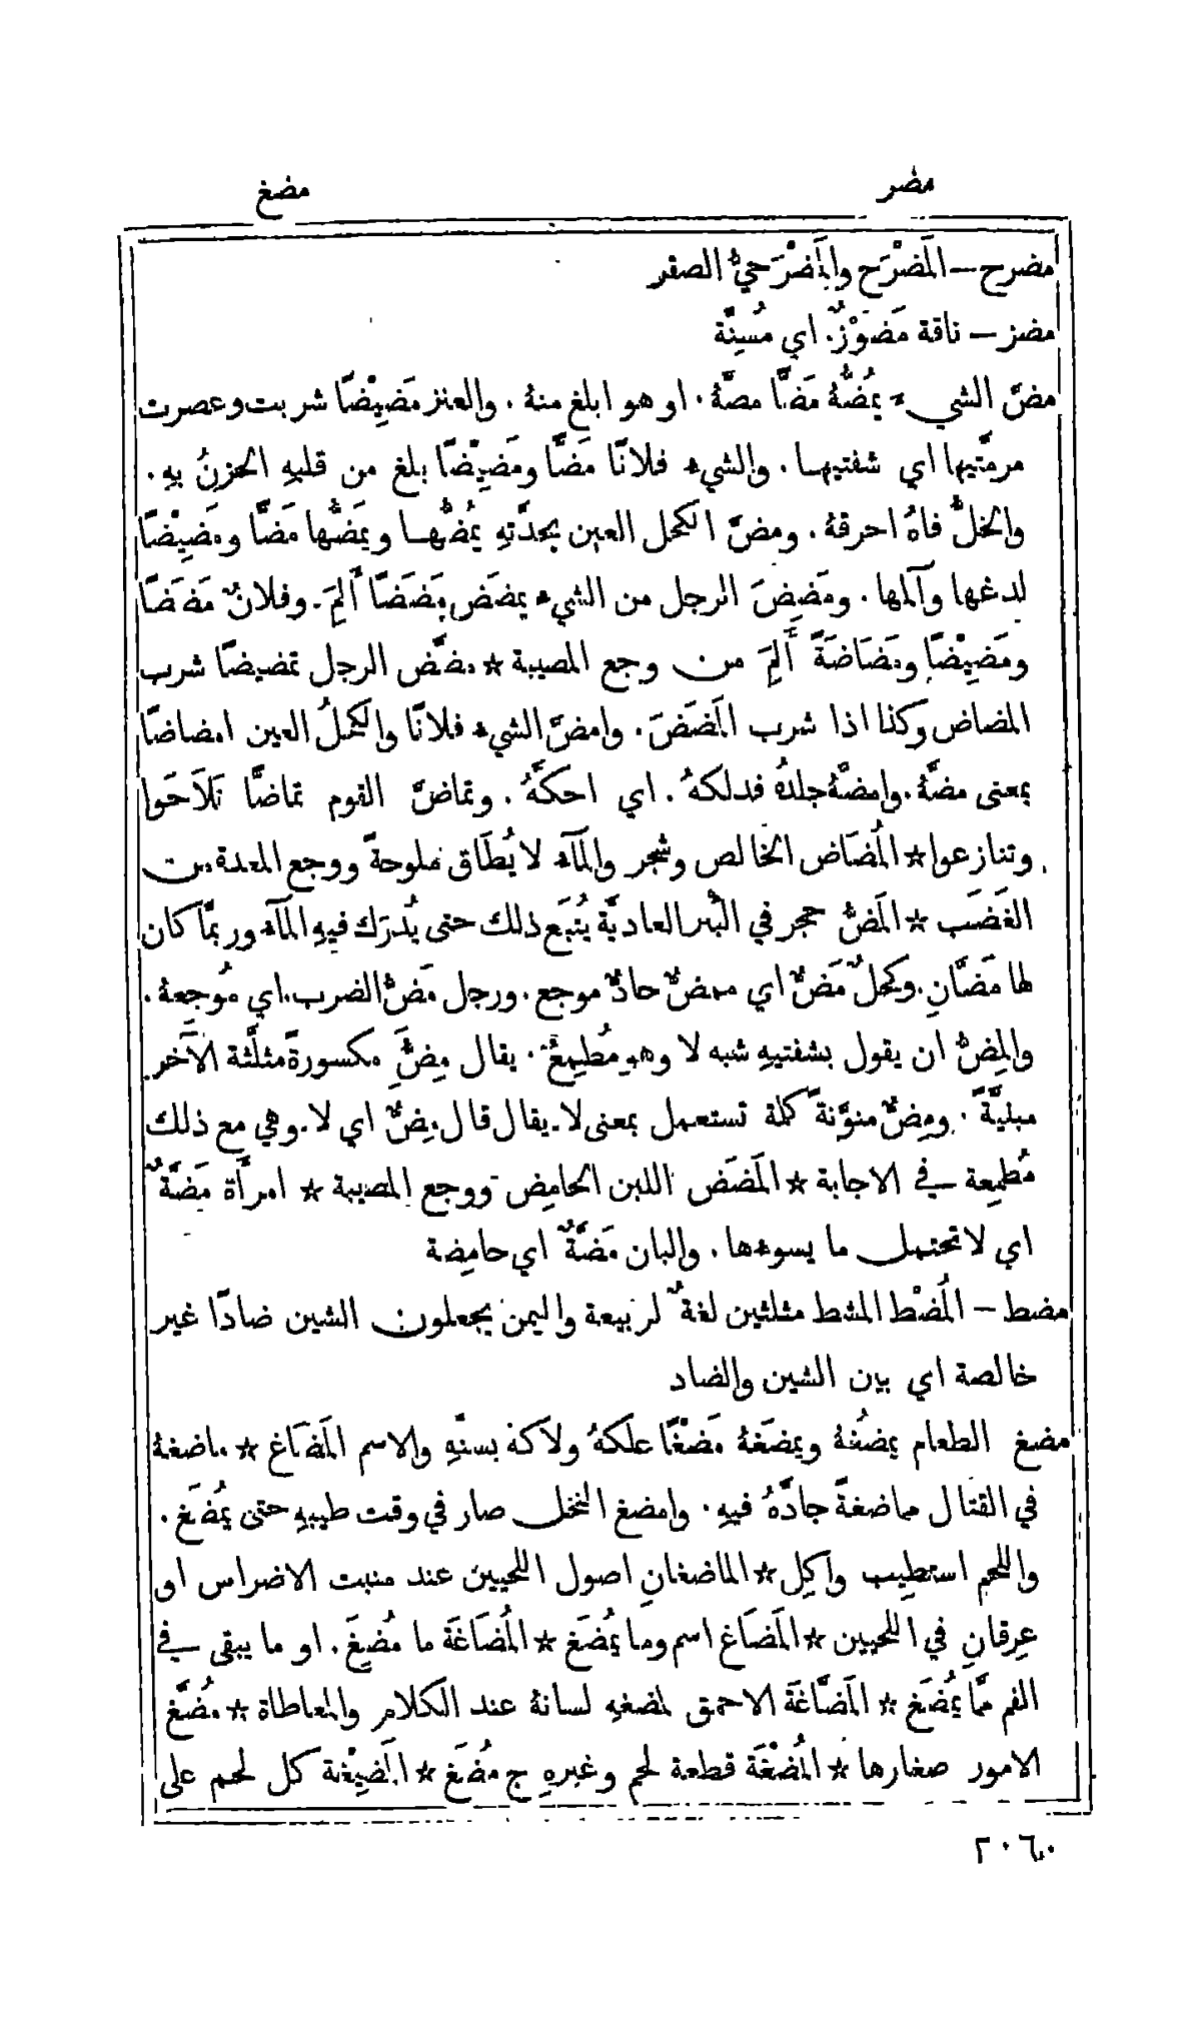 مضر
مضغ
مضرح — المَضْرَح والمَضْرَحيُّ الصقر
مضز — ناقة مَضُوْزٌ. اي مُسِنَّة
مضَّ الشيء يَمُضُّهُ مَضًّا مصَّهُ. او هو ابلغ منهُ. والعنز مَضِيْضًا شربت وعصرت
مرمَّتيها اي شفتيهـا. والشيء فلانًا مَضًّا ومَضِيْضًا بلغ من قلبهِ الحزنُ بهِ.
والخلُّ فاهُ احرقهُ. ومضَّ الكحل العين بحدَّتهِ يَمُضُّهـا ويَمَضُّها مَضًّا ومَضِيْضًا
لدغها وآلمها. ومَضِضَ الرجل من الشيء يمضَض مَضَضًا أَلِمَ. وفلانٌ مَضَضًا
ومَضِيْضًا ومَضَاضَةً أَلِمَ من وجع المصيبة ☆ مضَّض الرجل تمضيضًا شرب
المضاض وكذا اذا شرب المَضَضَ. وامضَّ الشيء فلانًا والكحلُ العين امضاضًا
بمعنى مضَّهُ. وامضَّهُ جلدهُ فدلكهُ. اي احكَّهُ. وتماضَّ القوم تماضًّا تلَاحَوا
وتنازعوا ☆ المُضَاض الخالص وشجر والمآء لا يُطَاق ملوحةً ووجع المعدة من
الغَضَب ☆ المَضُّ حجر في البئر العاديَّة يُتبَع ذلك حتى يُدرَك فيهِ المآء وربمَّا كان
لها مَضَّانِ. وكحلٌ مَضٌّ اي ممضٌّ حادٌّ موجع. ورجل مَضُّ الضرب. اي مُوجِعهُ.
والمِضُّ ان يقول بشفتيهِ شبه لا وهو مُطمِعٌ. يقال مِضَِّ مكسورةً مثلَّثة الآخر
مبنيَّةً. ومِضٌّ منوَّنةً كلمة تستعمل بمعنى لا. يقال قال مِضٌّ اي لا. وهي مع ذلك
مُطمِعة في الاجابة ☆ المَضَض اللبن الحامِض ووجع المصيبة ☆ امرأَة مَضَّةٌ
اي لا تحتمل ما يسوءها. والبان مَضَّةٌ اي حامِضة
مضط — المُضْط المشط مثلثين لغةٌ لربيعة واليمن يجعلون الشين ضادًا غير
خالصة اي بين الشين والضاد
مضغ الطعام يمضُغهُ ويمضَغهُ مَضْغًا علكهُ ولاكهُ بسنّهِ والاسم المَضَاغ ☆ ماضغهُ
في القتال مماضغةً جادَّهُ فيهِ. وامضغ النخل صار في وقت طيبهِ حتى يُمضَغ.
واللحم استطيب واكِل ☆ الماضغانِ اصول اللحيين عند منبت الاضراس او
عِرقانِ في اللحيين ☆ المَضَاغ اسم وما يُمضَغ ☆ المُضَاغَة ما مُضِغَ. او ما يبقى في
الفم ممَّا يُمضَغ ☆ المَضَّاغَة الاحمق لمضغهِ لسانهُ عند الكلام والمعاطاة ☆ مُضَّغ
الامور صغارها ☆ المُضْغَة قطعة لحم وغيرهِ ج مُضَغ ☆ المَضِيْغة كل لحم على
٢٠٦٠